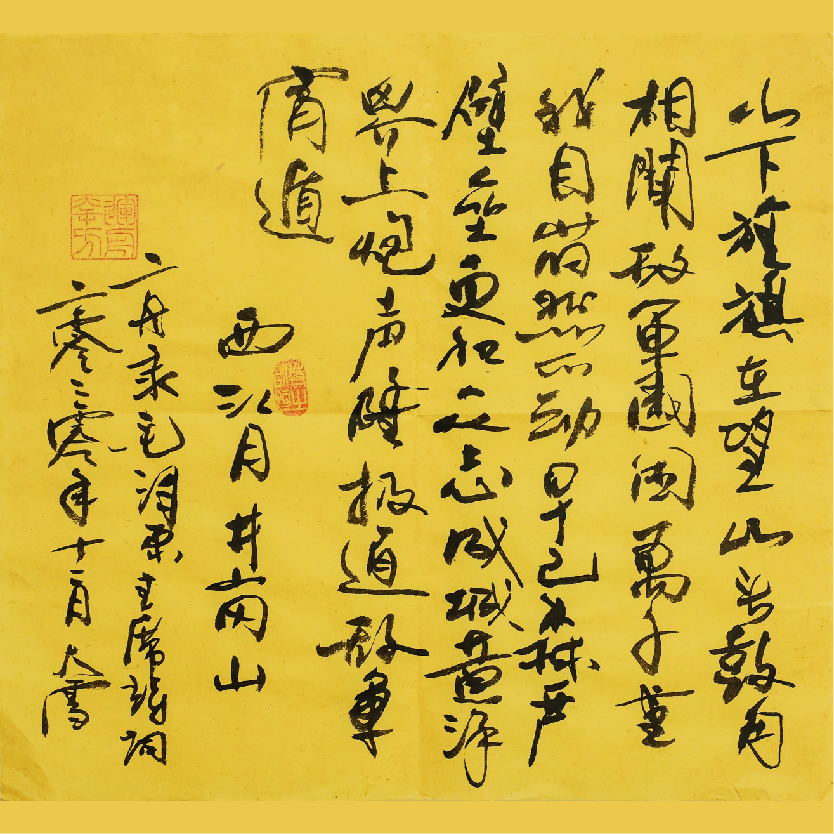 山下旌旗在望山头鼓角
相闻敌軍围困萬千重
我自岿然不动早已森严
壁垒更加众志成城黄洋
界上炮声隆报道敌軍
宵遁
西江月井岗山
二舟录毛泽东主席诗词
二零二零年十一月大雪